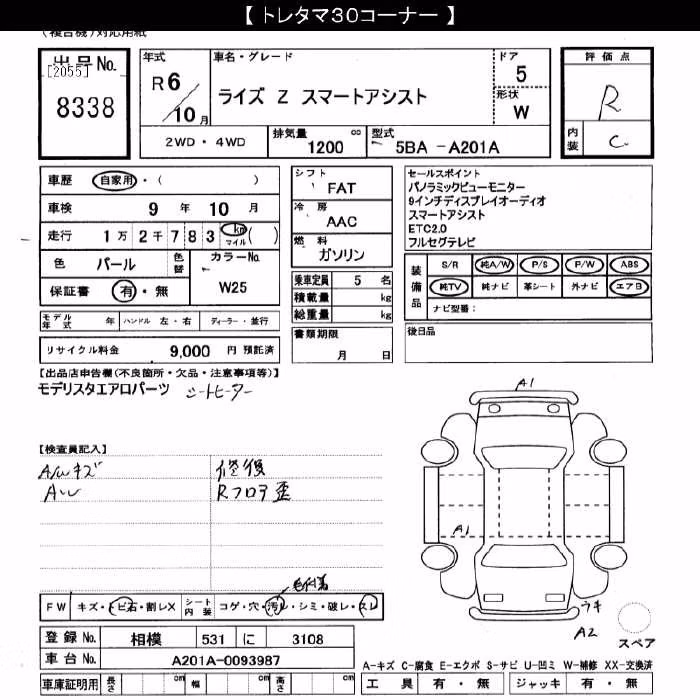 【 トレタマ30コーナー 】
(複合機)対応用紙
出品No.
[2055]
8338
年式
R6
10月
車名・グレード
ライズ Z スマートアシスト
ドア
5
形状
W
評価点
R
内装
C
2WD・4WD
排気量
cc
1200
型式
5BA -A201A
車歴 自家用・( )
車検 9 年 10 月
走行 1 万 2 千 7 8 3 km マイル ( )
色 パール 色替
カラーNo.
W25
保証書 有・無
シフト
FAT
冷房
AAC
燃料
ガソリン
乗車定員 5 名
積載量 kg
総重量 kg
書類期限
月 日
セールスポイント
パノラミックビューモニター
9インチディスプレイオーディオ
スマートアシスト
ETC2.0
フルセグテレビ
装備品
S/R 純A/W P/S P/W ABS
純TV 純ナビ 革シート 外ナビ エアB
ナビ型番:
後日品
モデル年式 年 ハンドル 左・右 ディーラー・並行
リサイクル料金 9,000 円 預託済
【出品店申告欄(不良箇所・欠品・注意事項等)】
モデリスタエアロパーツ シートヒーター
【検査員記入】
A/Wキズ
AW
修復
Rフロア歪
A1
A1
ウキ
A2
スペア
FW キズ・トビ石・割レX
シート内装 コゲ・穴・汚レ・シミ・破レ・スレ
登録No. 相模 531 に 3108
車台No. A201A-0093987
車庫証明用 長さ cm 幅 cm 高さ cm
A-キズ C-腐食 E-エクボ S-サビ U-凹ミ W-補修 XX-交換済
工具 有・無 ジャッキ 有・無